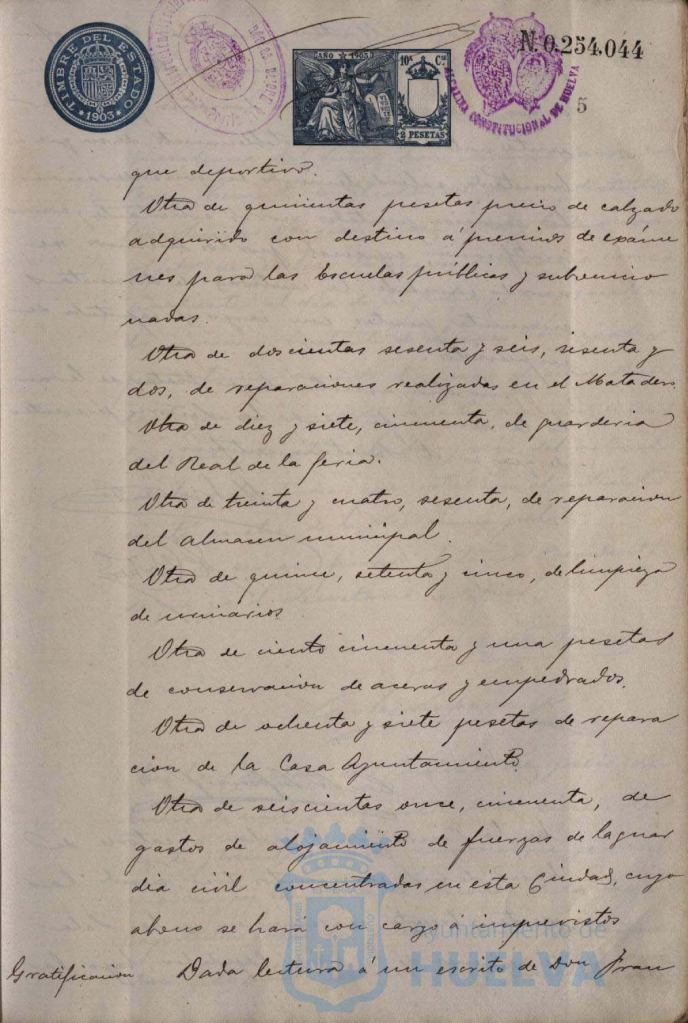 TIMBRE DEL ESTADO
1903
AÑO 1903
10ª Cª
2 PESETAS
ALCALDIA CONSTITUCIONAL DE HUELVA
N. 0.254.044
5
que deportivo.
Otra de quinientas pesetas precio de calzado
adquirido con destino á premios de exáme
nes para las Escuelas públicas y subvencio
nadas.
Otra de doscientas sesenta y seis, sesenta y
dos, de reparaciones realizadas en el Matadero.
Otra de diez y siete, cincuenta, de guarderia
del Real de la feria.
Otra de treinta y cuatro, sesenta, de reparacion
del almacen municipal.
Otra de quince, setenta y cinco, de limpieza
de urinarios
Otra de ciento cincuenta y una pesetas
de conservacion de aceras y empedrados.
Otra de ochenta y siete pesetas de repara
cion de la Casa Ayuntamiento.
Otra de seiscientas once, cincuenta, de
gastos de alojamiento de fuerzas de la guar
dia civil concentradas en esta Ciudad, cuyo
abono se hará con cargo á imprevistos
Gratificacion Dada lectura á un escrito de Don Fran
Ayuntamiento de
HUELVA